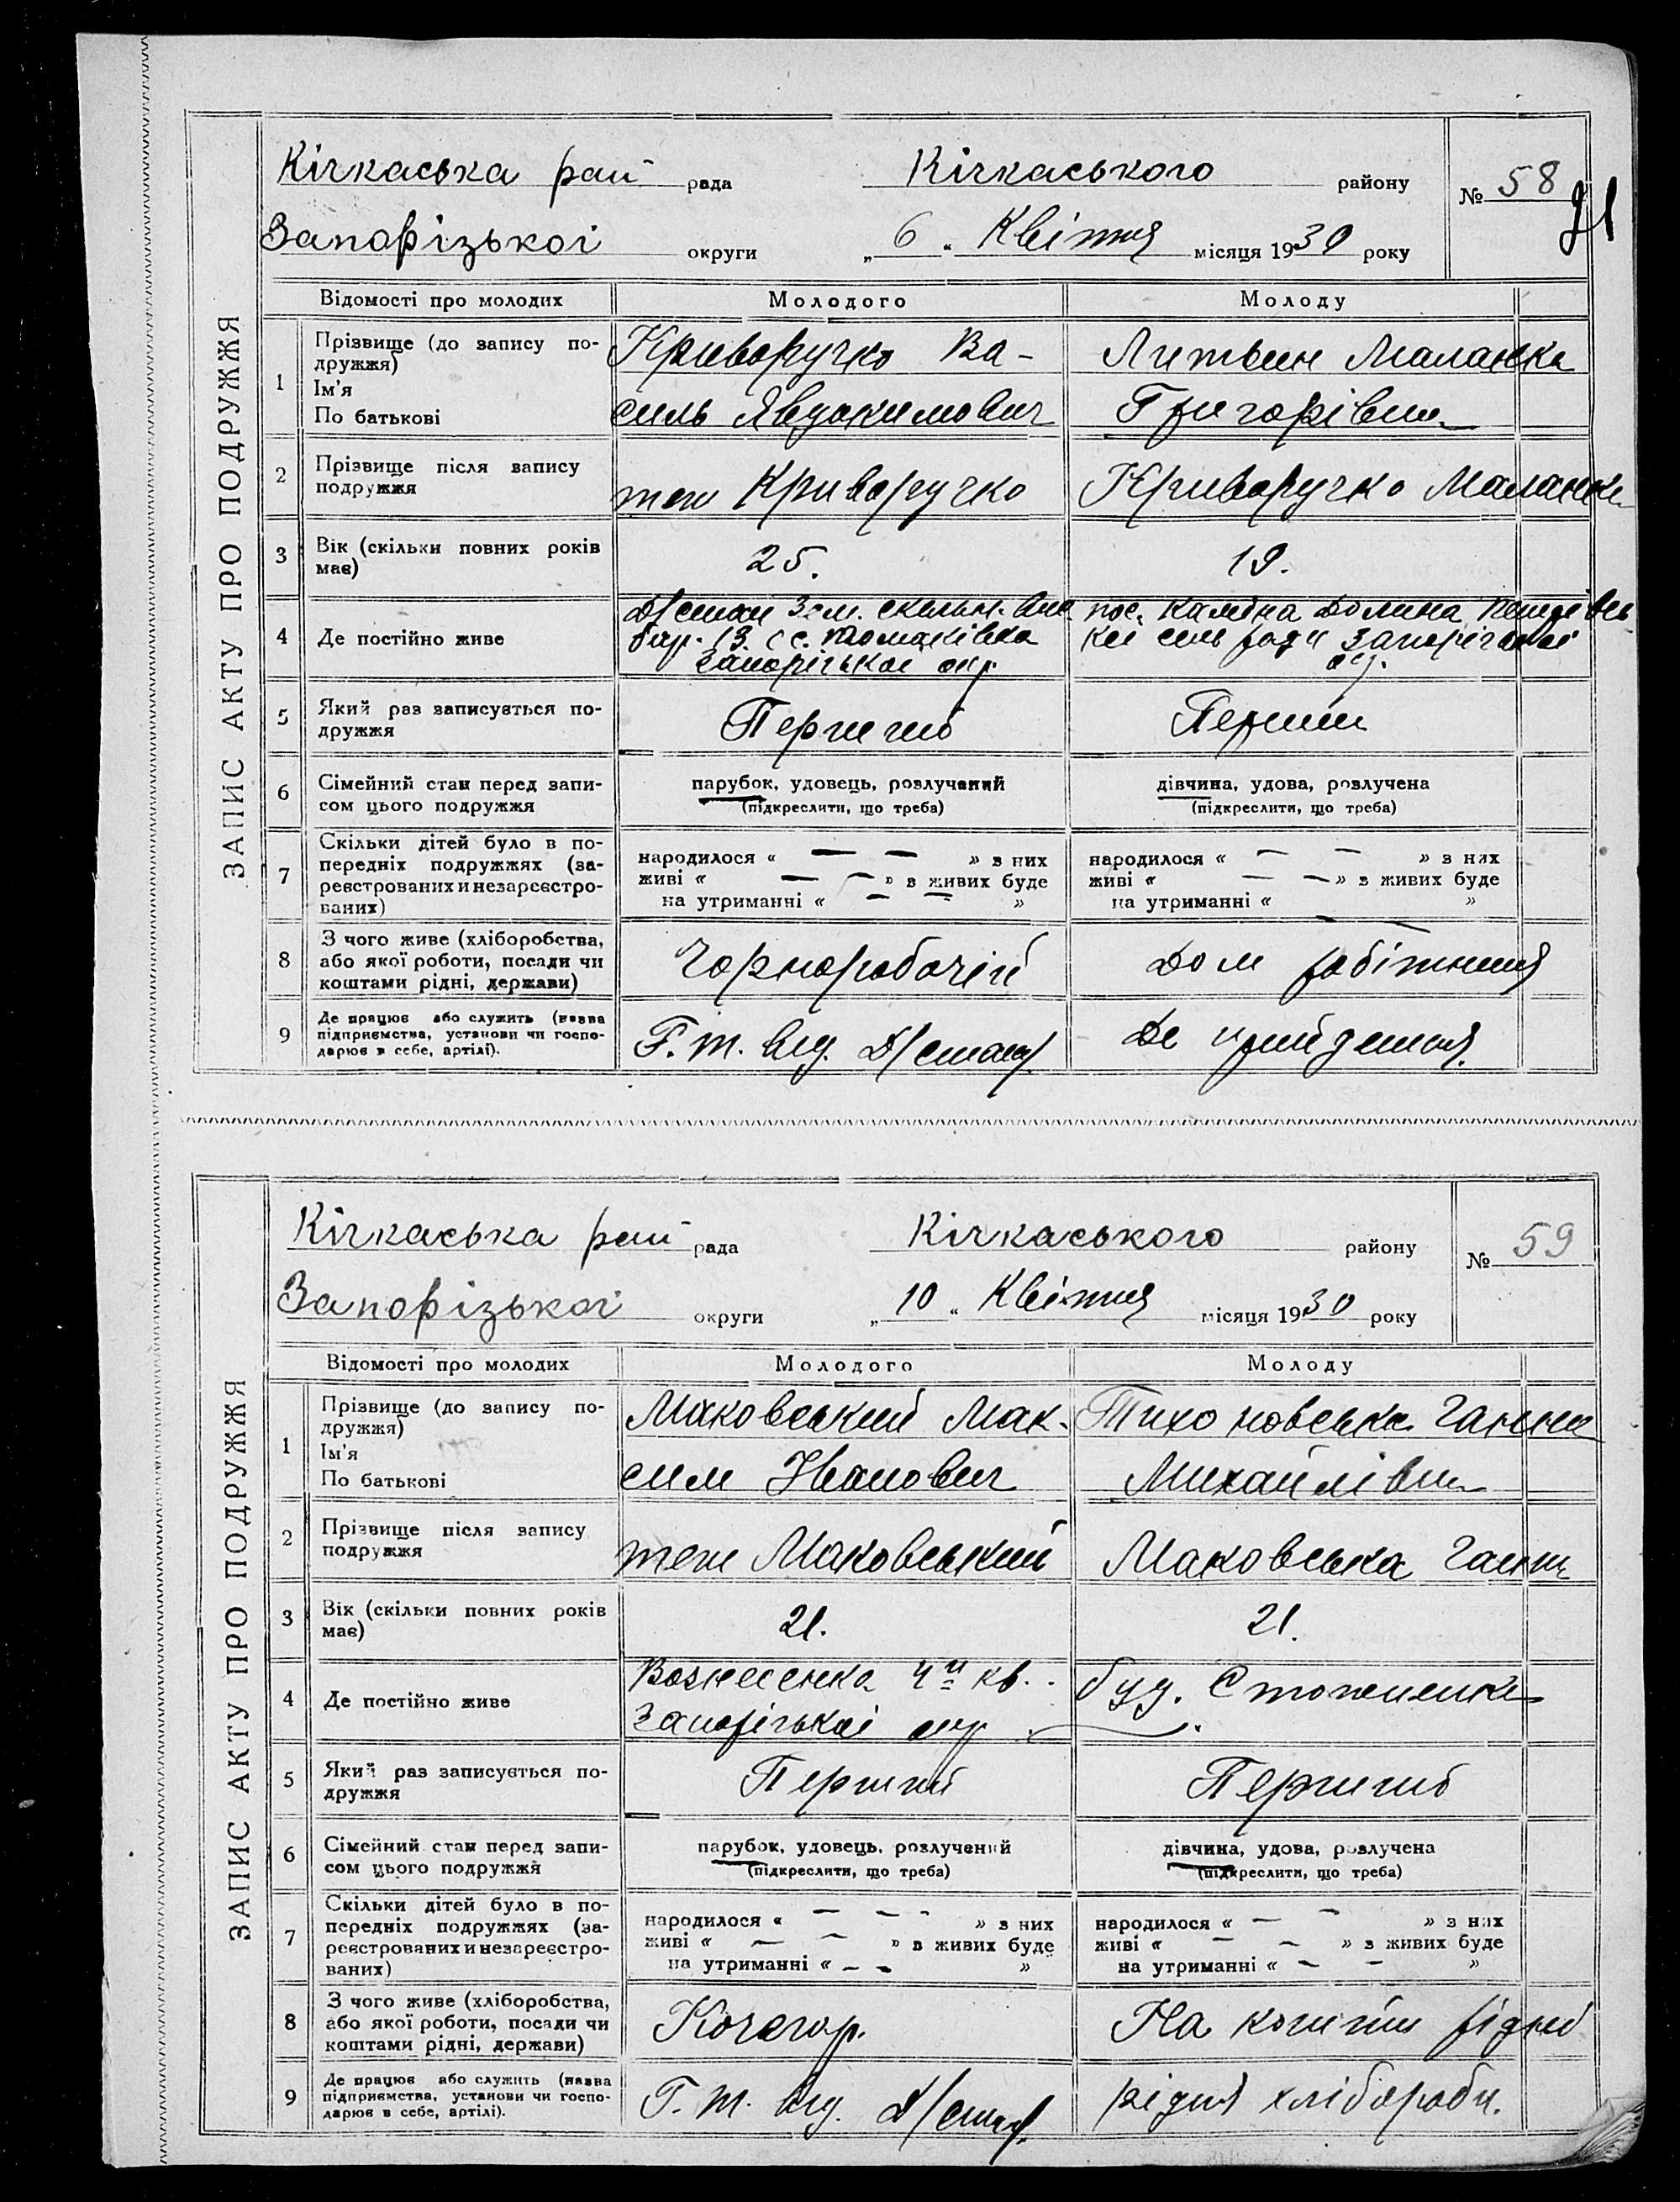 ЗАПИС АКТУ ПРО ПОДРУЖЖЯ
Кічкаська рай рада Кічкаського району № 58
Запорізької округи „6“ Квітня місяця 1930 року
Відомості про молодих Молодого Молоду
1 Прізвище (до запису по-
дружжя)
Ім'я
По батькові
Криворучко Ва-
силь Явдокимович
Литвин Маланка
Григорівна
2 Прізвище після запису
подружжя
теж Криворучко
Криворучко Маланка
3 Вік (скільки повних років
має)
25.
19.
4 Де постійно живе
Д/стан Зем. скельн.
бар. 13 с. Томаківка
Запорізької окр.
пос. Камяна Долина
кої сель ради Запорізької
окр.
5 Який раз записується по-
дружжя
Перший
Перший
6 Сімейний стан перед запи-
сом цього подружжя
парубок, удовець, розлучений
(підкреслити, що треба)
дівчина, удова, розлучена
(підкреслити, що треба)
7 Скільки дітей було в по-
передніх подружжях (за-
реєстрованих и незареєстро-
ваних)
народилося « — — » з них
живі « — — » з живих буде
на утриманні « — — »
народилося « — — » з них
живі « — — » з живих буде
на утриманні « — — »
8 З чого живе (хліборобства,
або якої роботи, посади чи
коштами рідні, держави)
Чорноробочій
Дом робітниця
9 Де працює або служить (назва
підприємства, установи чи госпо-
дарює в себе, артілі).
Г. т. від. Д/стану
Де прийдеться.
ЗАПИС АКТУ ПРО ПОДРУЖЖЯ
Кічкаська рай рада Кічкаського району № 59
Запорізької округи „10“ Квітня місяця 1930 року
Відомості про молодих Молодого Молоду
1 Прізвище (до запису по-
дружжя)
Ім'я
По батькові
Маковський Мак-
сим Іванович
Тихоновська Ганна
Михайлівна
2 Прізвище після запису
подружжя
теж Маковський
Маковська Ганна
3 Вік (скільки повних років
має)
21.
21.
4 Де постійно живе
Вознесенка 4й кв.
Запорізької окр.
буд.
5 Який раз записується по-
дружжя
Перший
Перший
6 Сімейний стан перед запи-
сом цього подружжя
парубок, удовець, розлучений
(підкреслити, що треба)
дівчина, удова, розлучена
(підкреслити, що треба)
7 Скільки дітей було в по-
передніх подружжях (за-
реєстрованих и незареєстро-
ваних)
народилося « — — » з них
живі « — — » з живих буде
на утриманні « — — »
народилося « — — » з них
живі « — — » з живих буде
на утриманні « — — »
8 З чого живе (хліборобства,
або якої роботи, посади чи
коштами рідні, держави)
Кочегар.
На кошти рідні
9 Де працює або служить (назва
підприємства, установи чи госпо-
дарює в себе, артілі).
Г. т. від. Д/стан.
рідня хлібороби.